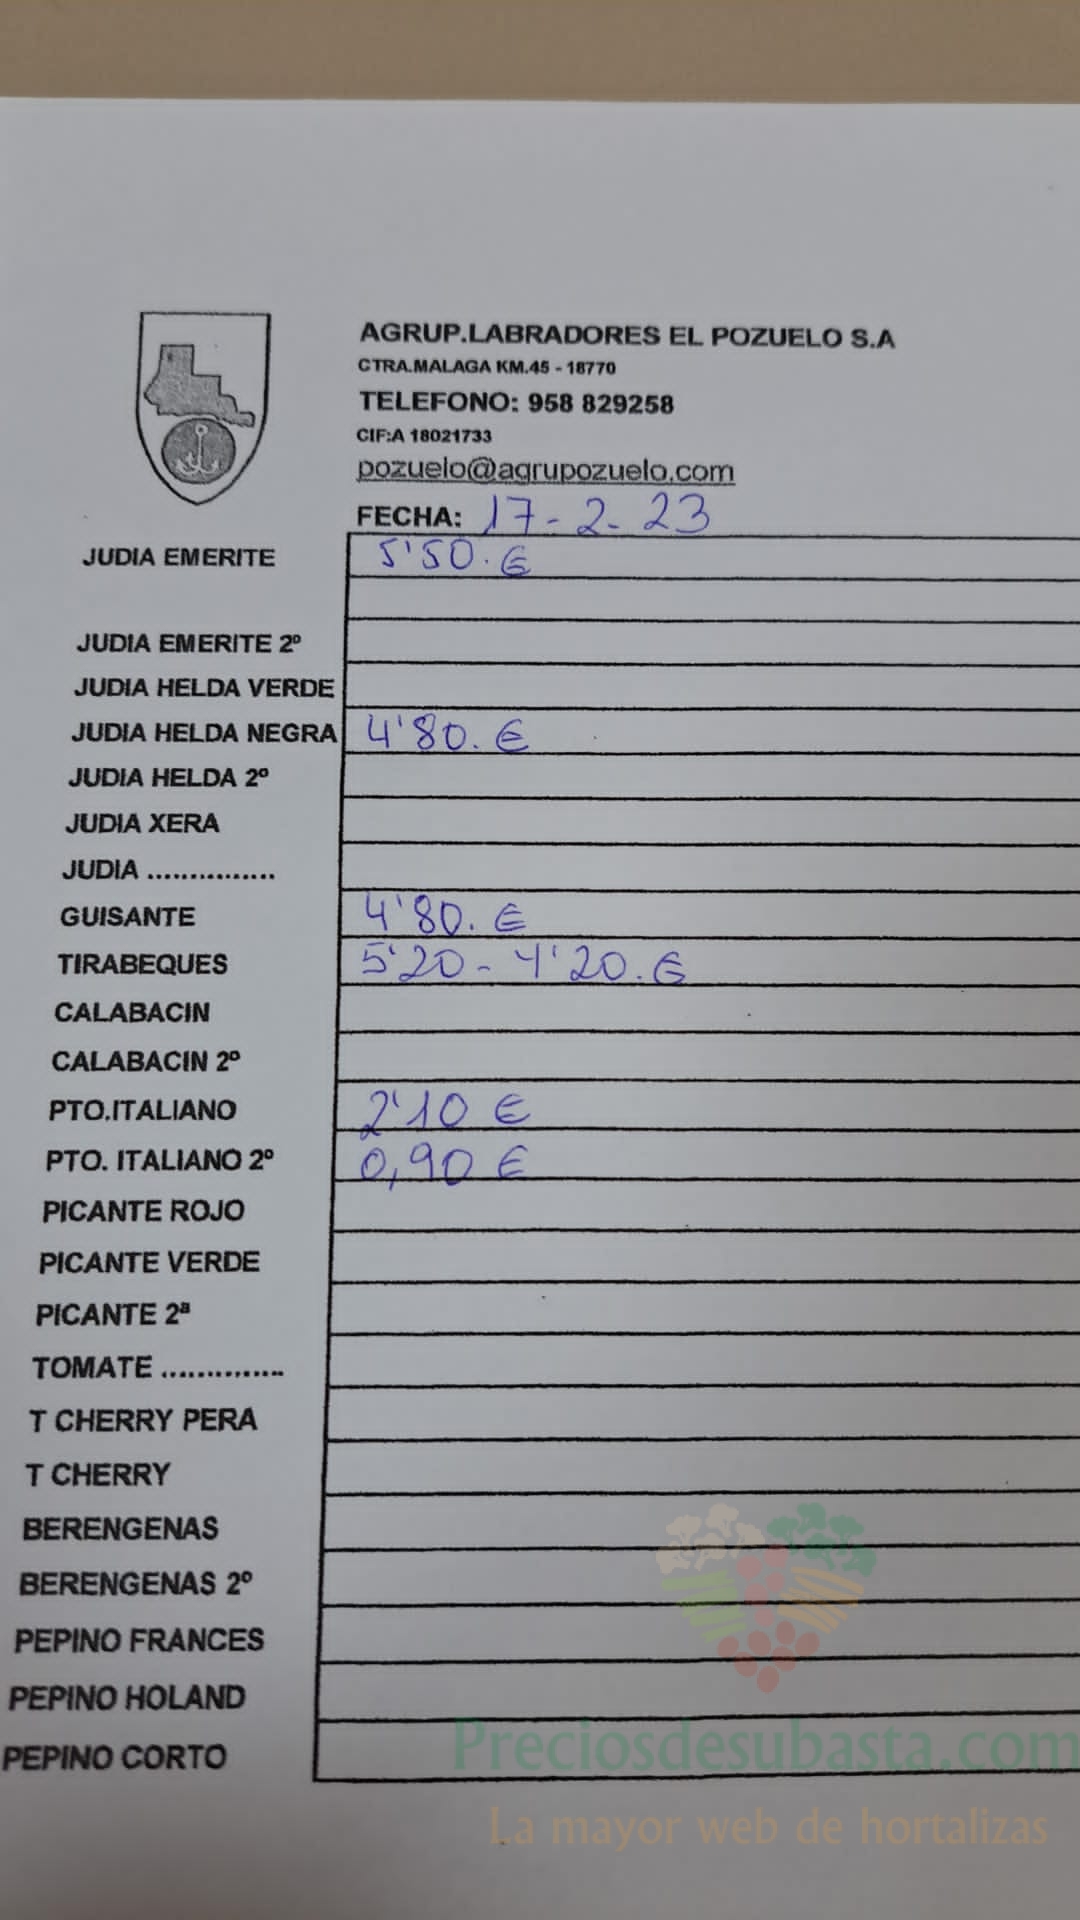 AGRUP.LABRADORES EL POZUELO S.A
CTRA.MALAGA KM.45 - 18770
TELEFONO: 958 829258
CIF:A 18021733
pozuelo@agrupozuelo.com
FECHA: 17-2-23
JUDIA EMERITE 5'50.€
JUDIA EMERITE 2º
JUDIA HELDA VERDE
JUDIA HELDA NEGRA 4'80.€
JUDIA HELDA 2º
JUDIA XERA
JUDIA ...............
GUISANTE 4'80.€
TIRABEQUES 5'20-4'20.€
CALABACIN
CALABACIN 2º
PTO.ITALIANO 2'10 €
PTO. ITALIANO 2º 0,90 €
PICANTE ROJO
PICANTE VERDE
PICANTE 2ª
TOMATE ..............
T CHERRY PERA
T CHERRY
BERENGENAS
BERENGENAS 2º
PEPINO FRANCES
PEPINO HOLAND
PEPINO CORTO
Preciosdesubasta.com
La mayor web de hortalizas